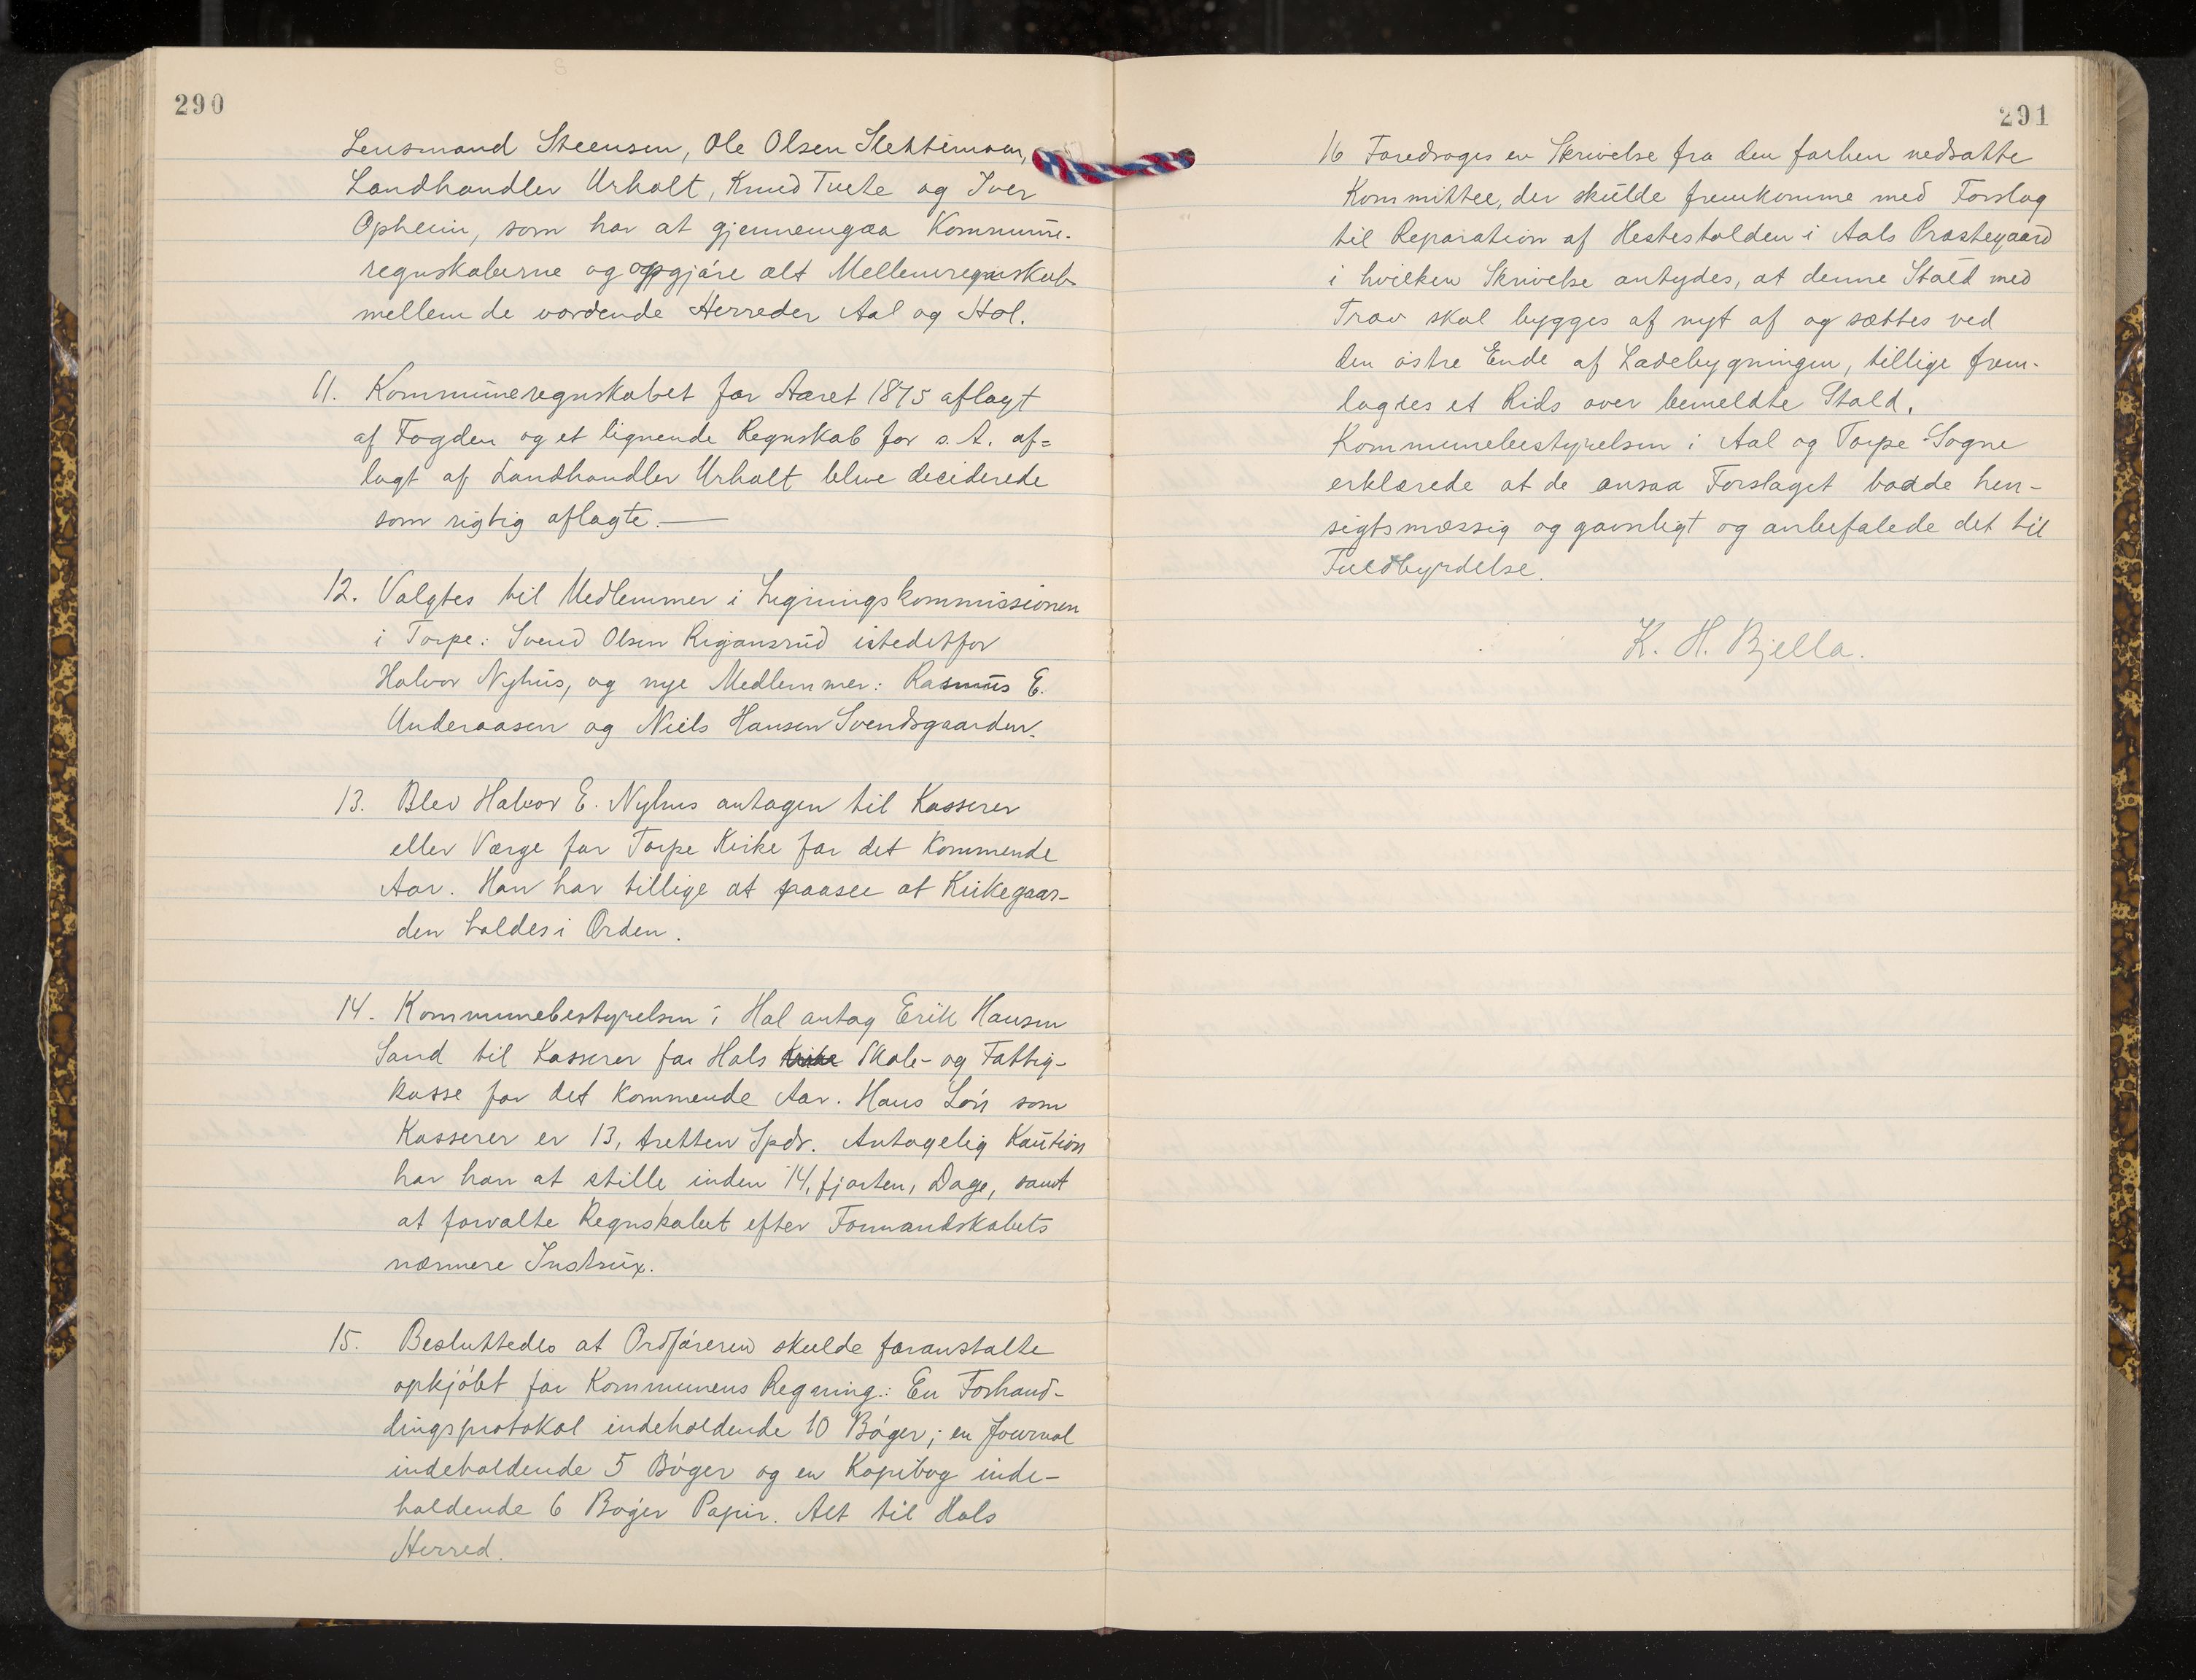 290
Lensmand Steensen, Ole Olsen Slettemoen,
Landhandler Urholt, Knud Tvete og Iver
Opheim, som har at gjennemgaa Kommune-
regnskaberne og opgjøre alt Mellemregnskab
mellem de vordende Herreder Aal og Hol.
11. Kommuneregnskabet for Aaret 1875 aflagt
af Fogden og et lignende Regnskab for s. A. af=
lagt af Landhandler Urholt bleve deciderede
som rigtig aflagte.—
12. Valgtes til Medlemmer i Ligningskommissionen
i Torpe: Svend Olsen Rigansrud istedetfor
Halvor Nyhus, og nye Medlemmer: Rasmus E.
Underaasen og Niels Hansen Svendsgaarden.
13. Blev Halvor E. Nyhus antagen til Kasserer
eller Værge for Torpe Kirke for det kommende
Aar. Han har tillige at paasee at Kirkegaar-
den holdes i Orden.
14. Kommunebestyrelsen i Hol antog Erik Hansen
Sand til Kasserer for Hols Kirke Skole- og Fattig-
kasse for det kommende Aar. Hans Løn som
Kasserer er 13, tretten Spdr. Antagelig Kaution
har han at stille inden 14, fjorten, Dage, samt
at forvalte Regnskabet efter Formandskabets
nærmere Instrux.
15. Besluttedes at Ordføreren skulde foranstalte
opkjøbt for Kommunens Regning: En Forhand-
lingsprotokol indeholdende 10 Bøger; en Journal
indeholdende 5 Bøger og en Kopibog inde-
holdende 6 Bøger Papir. Alt til Hols
Herred.
291
16 Foredroges en Skrivelse fra den forhen nedsatte
Kommittee, der skulde fremkomme med Forslag
til Reparation af Hestestalden i Aals Præstegaard
i hvilken Skrivelse antydes, at denne Stald med
Trøv skal bygges af nyt af og sættes ved
den østre Ende af Ladebygningen, tillige frem-
lagdes et Rids over bemeldte Stald.
Kommunebestyrelsen i Aal og Torpe Sogne
erklærede at de ansaa Forslaget baade hen-
sigtsmæssig og gavnligt og anbefalede det til
Fuldbyrdelse.
K. H. Bjella.